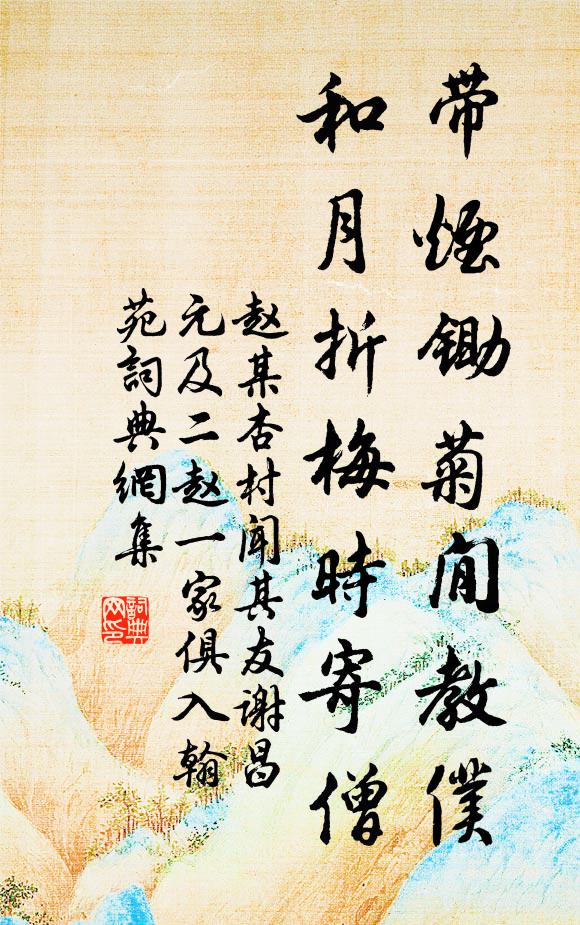 带煙锄菊閒教僕
和月折梅時寄僧
赵某杏村闻其友谢昌
元及二赵一家俱入翰
苑詞典網集
詞典
网印